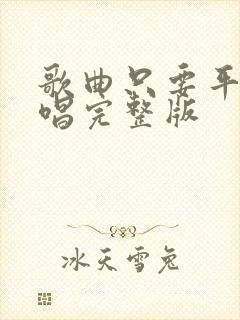 歌曲只要平
唱完整版
冰天雪兔